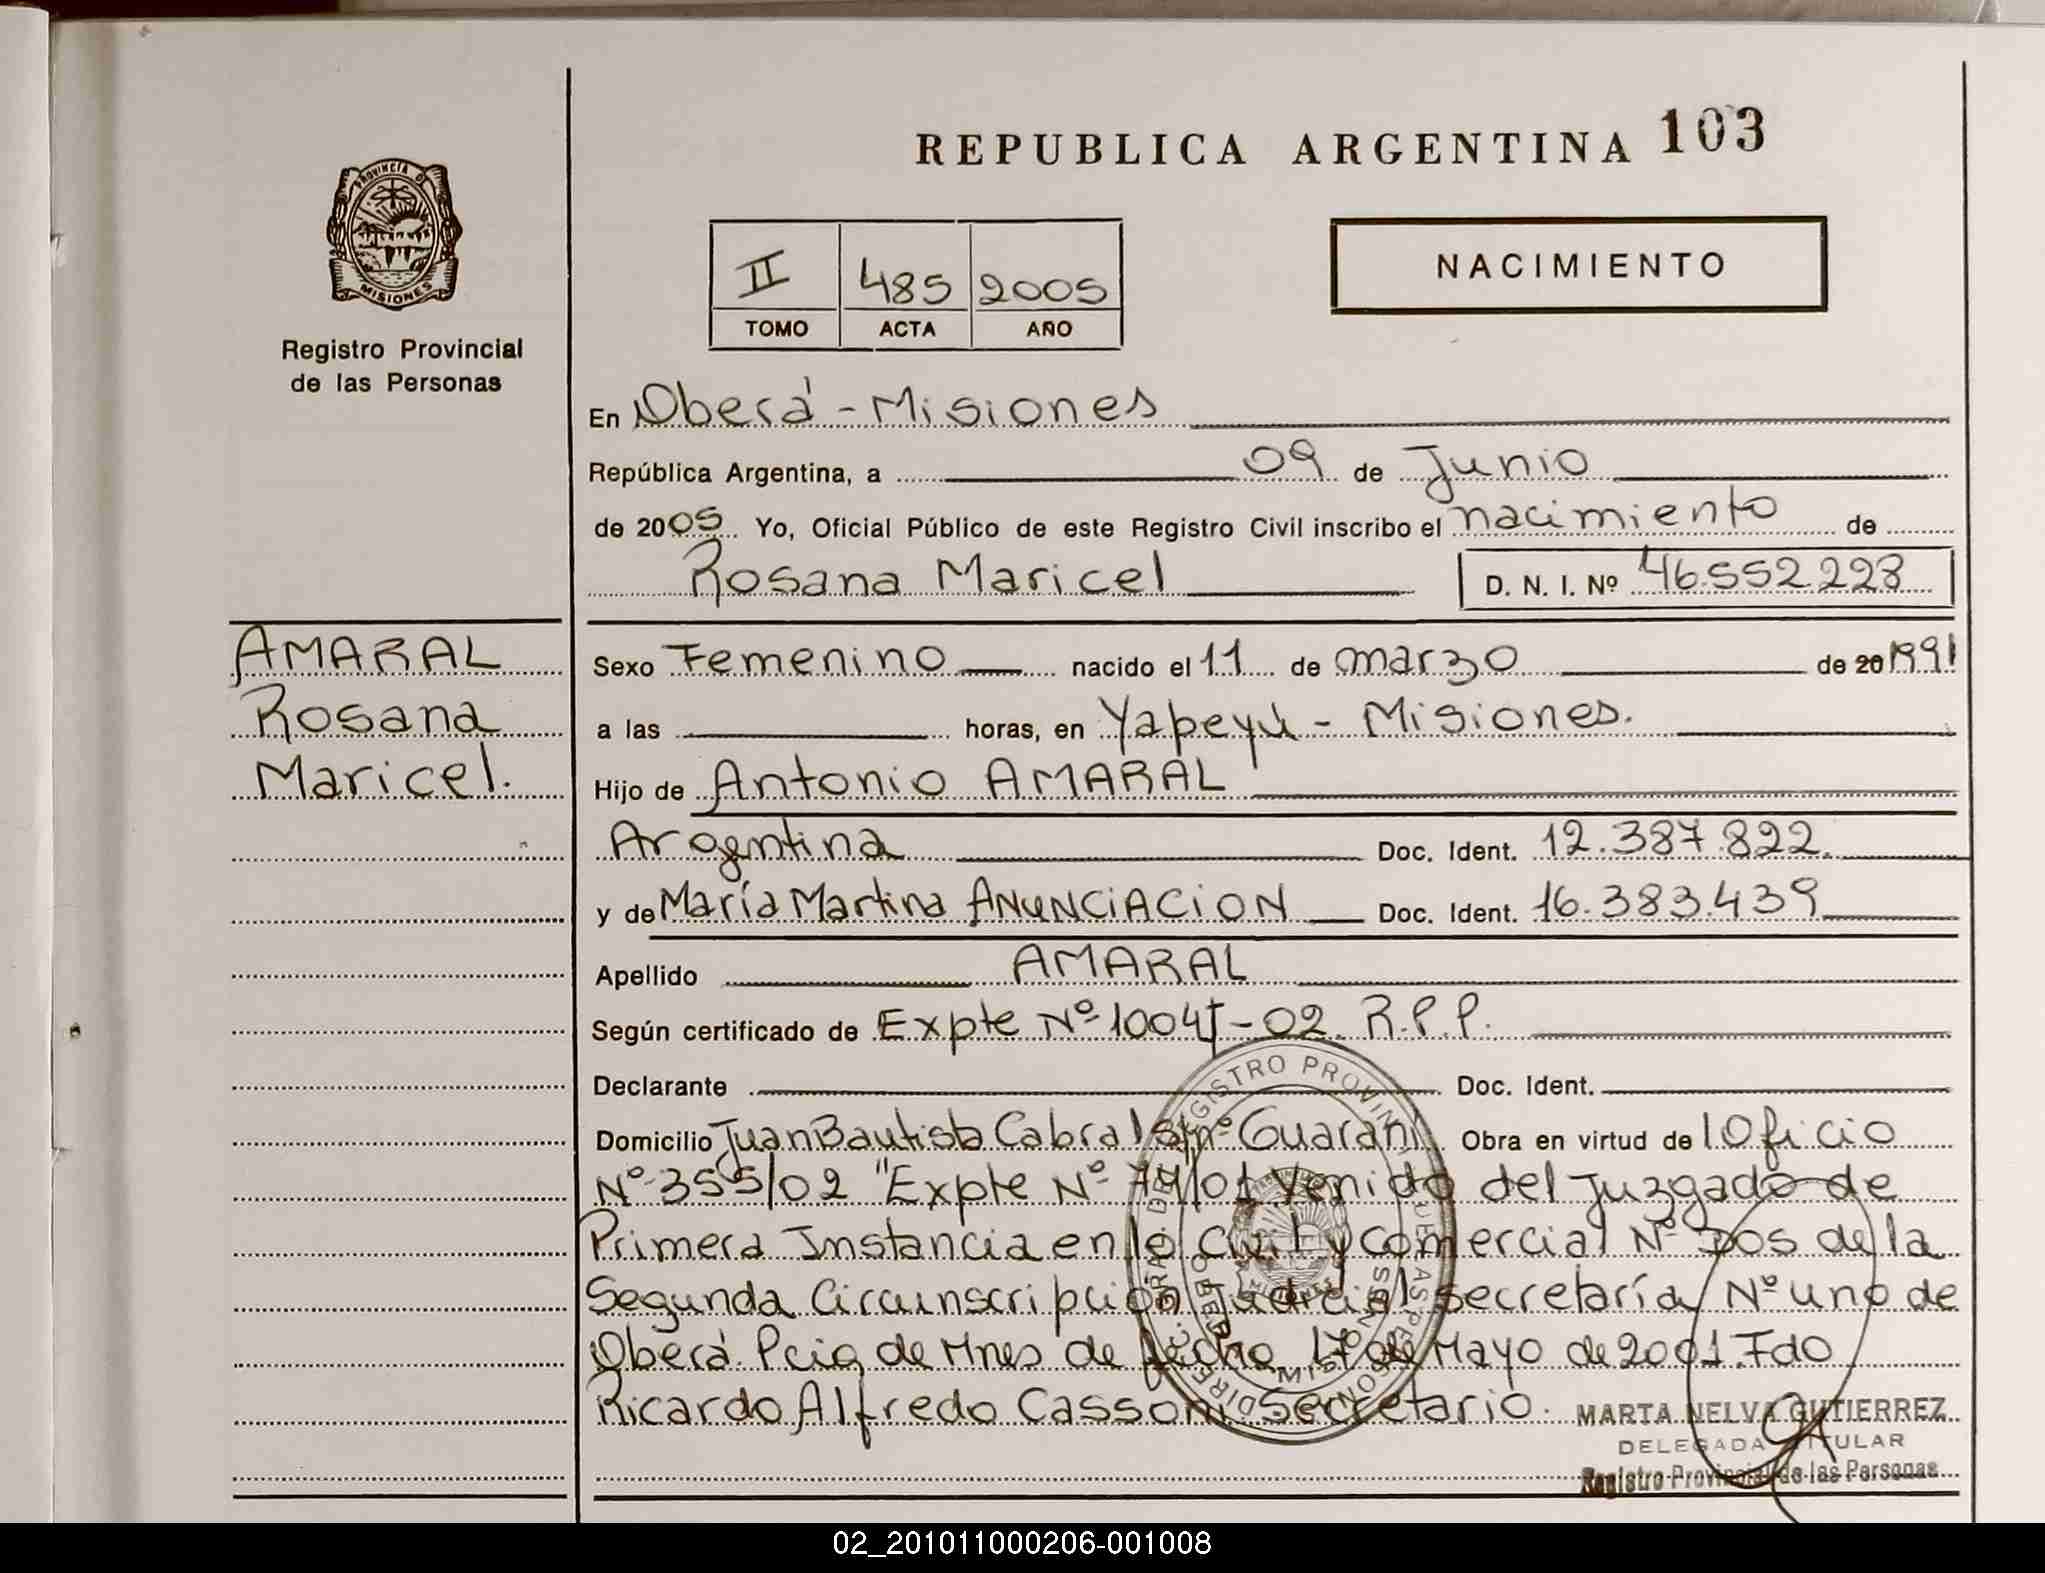 REPUBLICA ARGENTINA 103
PROVINCIA DE
MISIONES
Registro Provincial
de las Personas
II 485 2005
TOMO ACTA AÑO
NACIMIENTO
En Oberá - Misiones
República Argentina, a 09 de Junio
de 2005 Yo, Oficial Público de este Registro Civil inscribo el nacimiento de
Rosana Maricel D. N. I. Nº 46.552.228
AMARAL
Rosana
Maricel.
Sexo Femenino nacido el 11 de marzo de 20 1991
a las horas, en Yapeyú - Misiones.
Hijo de Antonio AMARAL
Argentina Doc. Ident. 12.387.822.
y de María Martina ANUNCIACION Doc. Ident. 16.383.439
Apellido AMARAL
Según certificado de Expte Nº 1004 -02. R.P.P.
Declarante Doc. Ident.
Domicilio Juan Bautista Cabral s/nº Guaraní Obra en virtud de 1 Oficio
Nº 355/02 "Expte Nº /01 Venido del Juzgado de
Primera Instancia en lo Civil y comercial Nº Dos de la
Segunda Circunscripción Judicial secretaría Nº uno de
Oberá Pcia de Mnes de fecha 17 de Mayo de 2001. Fdo
Ricardo Alfredo Cassoni Secretario.
MARTA NELVA GUTIERREZ
DELEGADA TITULAR
Registro Provincial de las Personas
02_201011000206-001008